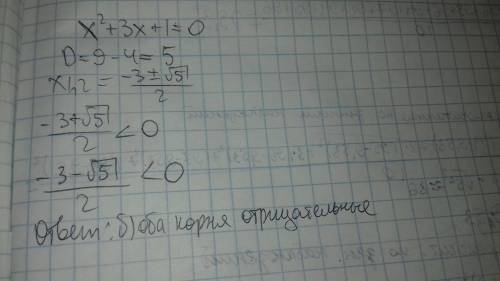 x²+3x+1=0
D=9-4=5
x1,2 = -3±√5/2
-3+√5/2 < 0
-3-√5/2 < 0
Ответ: б) оба корня отрицательные